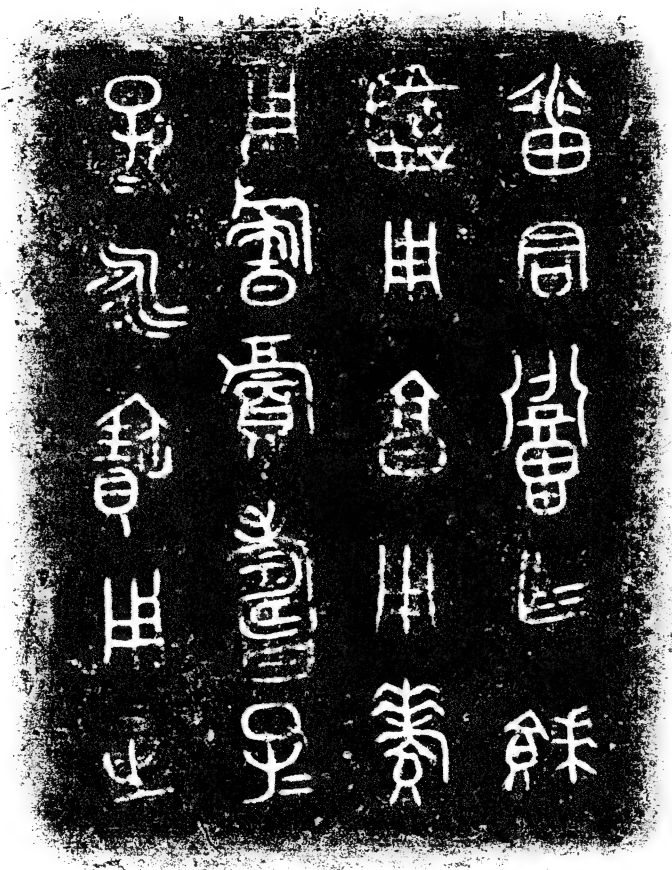 番君召乍餴
簠用亯用孝
用旂眉壽子=
孫=永寶用之